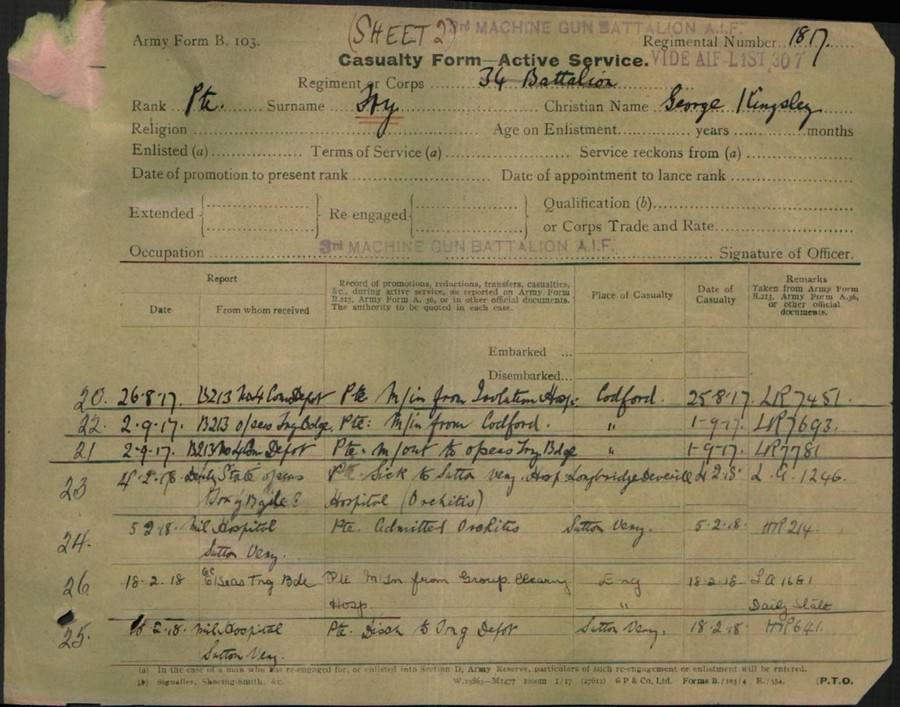 (SHEET 2)
3rd MACHINE GUN BATTALION A.I.F.
Army Form B. 103.
Regimental Number 1817.
Casualty Form—Active Service.
VIDE AIF-LIST 307
Regiment or Corps 34 Battalion
Rank Pte. Surname Ivy Christian Name George Kingsley
Religion Age on Enlistment years months
Enlisted (a) Terms of Service (a) Service reckons from (a)
Date of promotion to present rank Date of appointment to lance rank
Extended Re-engaged Qualification (b)
or Corps Trade and Rate
3rd MACHINE GUN BATTALION A.I.F.
Occupation Signature of Officer.
Report
Date From whom received
Record of promotions, reductions, transfers, casualties, &c., during active service, as reported on Army Form B.213, Army Form A. 36, or in other official documents. The authority to be quoted in each case.
Place of Casualty
Date of Casualty
Remarks
Taken from Army Form B.213, Army Form A.36, or other official documents.
Embarked ...
Disembarked...
20. 26-8-17. B213 No4 Com Depot Pte M/in from Isolation Hosp: Codford. 25-8-17. LR7451
22. 2-9-17. B213 o/seas Trg Bdge. Pte: M/in from Codford. " 1-9-17. LR7693.
21 2-9-17. B213 No4 Com Depot Pte. M/out to o/seas Trg Bdge " 1-9-17. LR7781
23 4-2-18 Daily State o/seas Pte Sick to Sutton Veny Hosp Longbridge Deverill 4 2 18 L.A. 1246.
Hospital (Orchitis)
24. 5 2 18. Mil Hospital Pte. Admitted Orchitis Sutton Veny. 5.2.18. HP214.
Sutton Veny.
26 18.2.18 O/Seas Trg Bde Pte M/In from Group Clearing Eng 18-2-18 LA 1681
Hosp. " Daily State
25. 18-2-18. Mil Hospital Pte. Disch to Trg Depot Sutton Veny. 18-2-18. HP641.
Sutton Veny.
(a) In the case of a man who has re-engaged for, or enlisted into Section D, Army Reserve, particulars of such re-engagement or enlistment will be entered.
(b) Signaller, Shoeing-Smith, &c. G P & Co., Ltd. Forms B./103/4 (P.T.O.